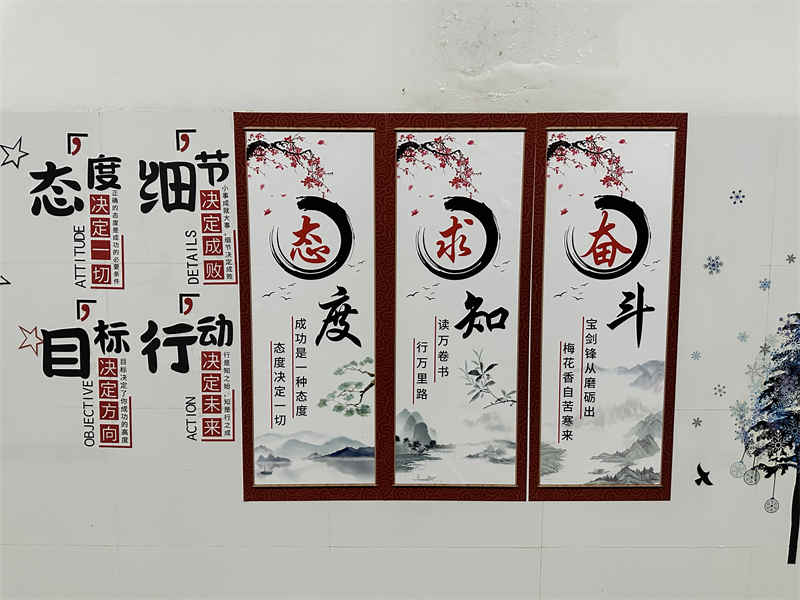 态度
决定一切
正确的态度是成功的必要条件
ATTITUDE
细节
决定成败
小事成就大事,细节决定成败
DETAILS
目标
决定方向
目标决定了你成功的高度
OBJECTIVE
行动
决定未来
行是知之始,知是行之成
ACTION
态度
成功是一种态度
态度决定一切
求知
读万卷书
行万里路
奋斗
宝剑锋从磨砺出
梅花香自苦寒来